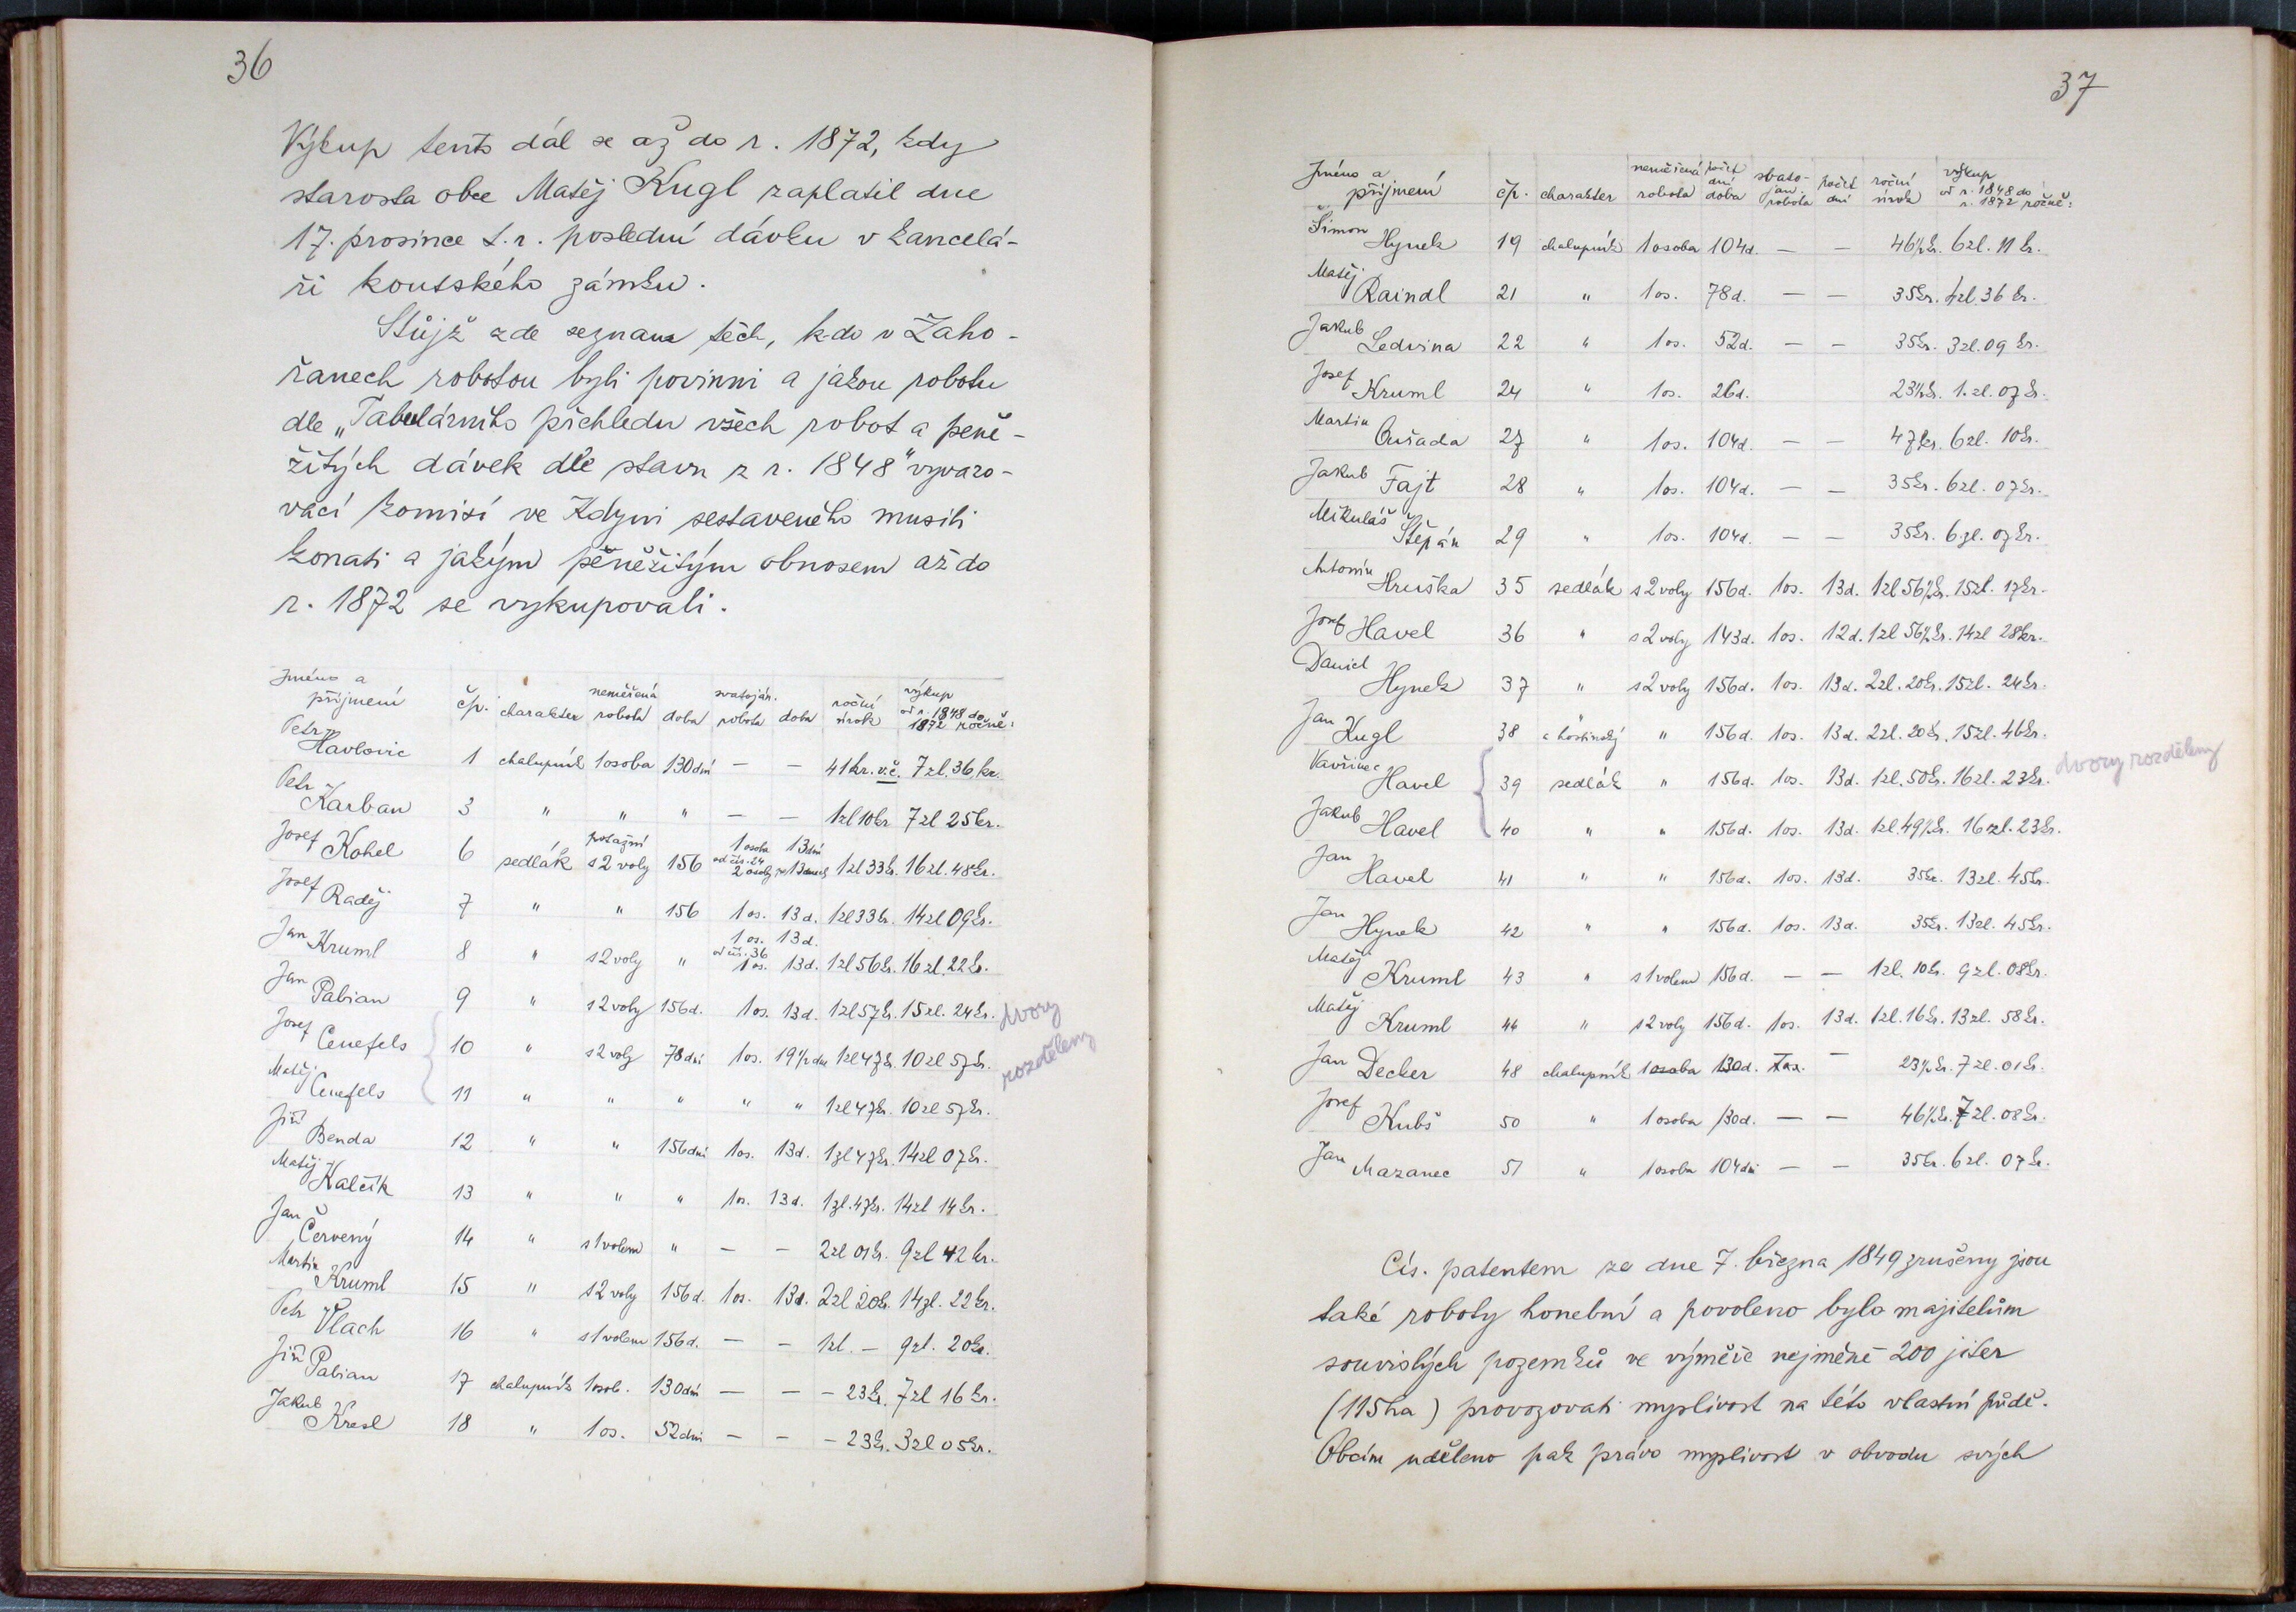 36
Výkup tento dál se až do r. 1872, kdy
starosta obce Matěj Kugl zaplatil dne
17. prosince t. r. poslední dávku v kancelá-
ři koutského zámku.
Stůjž zde seznam těch, kdo v Zaho-
řanech robotou byli povinni a jakou robotu
dle „Tabelárního přehledu všech robot a peně-
žitých dávek dle stavu z r. 1848" vyvazo-
vací komisí ve Kdyni sestaveného musili
konati a jakým peněžitým obnosem až do
r. 1872 se vykupovali.
Jméno a příjmení čp. charakter neměřená robota doba svatoján. robota doba roční úrok výkup od r. 1848 do 1872 ročně:
Petr Havlovic 1 chalupník 1 osoba 130 dní — — 41 kr. v.č. 7 zl. 36 kr.
Petr Karban 3 " " " — — 1 zl 10 kr 7 zl 25 kr.
Josef Kohel 6 sedlák potažní s 2 voly 156 1 osoba 13 dní od čís. 24 2 osoby po 13 dnech 1 zl 33 kr. 16 zl. 48 kr.
Josef Raděj 7 " " 156 1 os. 13 d. 1 zl 33 kr. 14 zl 09 kr.
Jan Kruml 8 " s 2 voly " 1 os. 13 d. od čís. 36 1 os. 13 d. 1 zl 56 kr. 16 zl. 22 kr.
Jan Pabian 9 " s 2 voly 156 d. 1 os. 13 d. 1 zl 57 kr. 15 zl. 24 kr.
Josef Cenefels 10 " s 2 voly 78 dní 1 os. 19 1/2 dne 1 zl 47 kr. 10 zl 57 kr.
Matěj Cenefels 11 " " " " " 1 zl 47 kr. 10 zl 57 kr.
dvory rozděleny
Jiří Benda 12 " " 156 dní 1 os. 13 d. 1 zl 47 kr. 14 zl 07 kr.
Matěj Kalčík 13 " " " 1 os. 13 d. 1 zl. 47 kr. 14 zl 14 kr.
Jan Červený 14 " s 1 volem " — — 2 zl 01 kr. 9 zl 42 kr.
Martin Kruml 15 " s 2 voly 156 d. 1 os. 13 d. 2 zl 20 kr. 14 zl. 22 kr.
Petr Vlach 16 " s 1 volem 156 d. — — 1 zl. — 9 zl. 20 kr.
Jiří Pabian 17 chalupník 1 osob. 130 dní — — — 23 kr. 7 zl 16 kr.
Jakub Kresl 18 " 1 os. 52 dní — — — 23 kr. 3 zl 05 kr.
37
Jméno a příjmení čp. charakter neměřená robota počet dní doba svatojan. robota počet dní roční úrok výkup od r. 1848 do r. 1872 ročně:
Šimon Hynek 19 chalupník 1 osoba 104 d. — — 46 1/2 kr. 6 zl. 11 kr.
Matěj Raindl 21 " 1 os. 78 d. — — 35 kr. 4 zl. 36 kr.
Jakub Ledvina 22 " 1 os. 52 d. — — 35 kr. 3 zl. 09 kr.
Josef Kruml 24 " 1 os. 26 d. 23 1/2 kr. 1. zl. 07 kr.
Martin Oušada 27 " 1 os. 104 d. — — 47 kr. 6 zl. 10 kr.
Jakub Fajt 28 " 1 os. 104 d. — — 35 kr. 6 zl. 07 kr.
Mikuláš Štěpán 29 " 1 os. 104 d. — — 35 kr. 6 zl. 07 kr.
Antonín Hruška 35 sedlák s 2 voly 156 d. 1 os. 13 d. 1 zl 56 1/2 kr. 15 zl. 17 kr.
Josef Havel 36 " s 2 voly 143 d. 1 os. 12 d. 1 zl 56 1/2 kr. 14 zl 28 kr.
Daniel Hynek 37 " s 2 voly 156 d. 1 os. 13 d. 2 zl. 20 kr. 15 zl. 24 kr.
Jan Kugl 38 a hostinský " 156 d. 1 os. 13 d. 2 zl. 20 kr. 15 zl. 46 kr.
Vavřinec Havel 39 sedlák " 156 d. 1 os. 13 d. 1 zl. 50 kr. 16 zl. 23 kr.
dvory rozděleny
Jakub Havel 40 " " 156 d. 1 os. 13 d. 1 zl. 49 1/2 kr. 16 zl. 23 kr.
Jan Havel 41 " " 156 d. 1 os. 13 d. 35 kr. 13 zl. 45 kr.
Jan Hynek 42 " " 156 d. 1 os. 13 d. 35 kr. 13 zl. 45 kr.
Matěj Kruml 43 " s 1 volem 156 d. — — 1 zl. 10 kr. 9 zl. 08 kr.
Matěj Kruml 44 " s 2 voly 156 d. 1 os. 13 d. 1 zl. 16 kr. 13 zl. 58 kr.
Jan Decker 48 chalupník 1 osoba 130 d. 1 os. — 23 1/2 kr. 7 zl. 01 kr.
Josef Kubš 50 " 1 osoba 130 d. — — 46 1/2 kr. 7 zl. 08 kr.
Jan Mazanec 51 " 1 osoba 104 dni — — 35 kr. 6 zl. 07 kr.
Cís. patentem ze dne 7. března 1849 zrušeny jsou
také roboty honební a povoleno bylo majitelům
souvislých pozemků ve výměře nejméně 200 jiter
(115 ha) provozovati myslivost na této vlastní půdě.
Obcím uděleno pak právo myslivost v obvodu svých